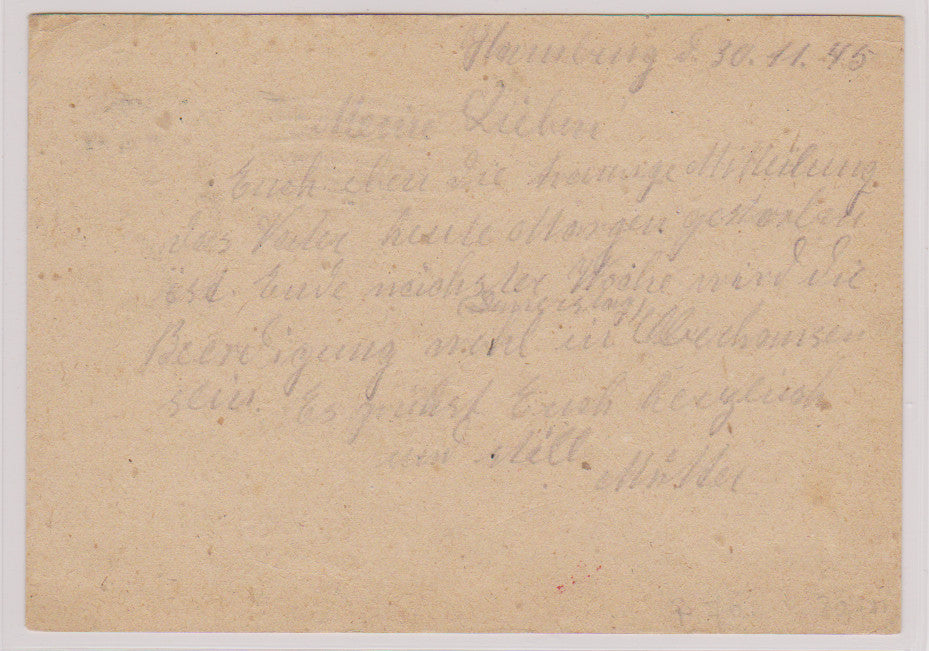 Hamburg d. 30.11.45
Meine Lieben
Euch eben die traurige Mitteilung
das Vater heute Morgen gestorben
ist. Ende nächster Woche wird die
(Donnerstag)
Beerdigung wohl in
sein. Es grüßt Euch herzlich
und still
Mutter